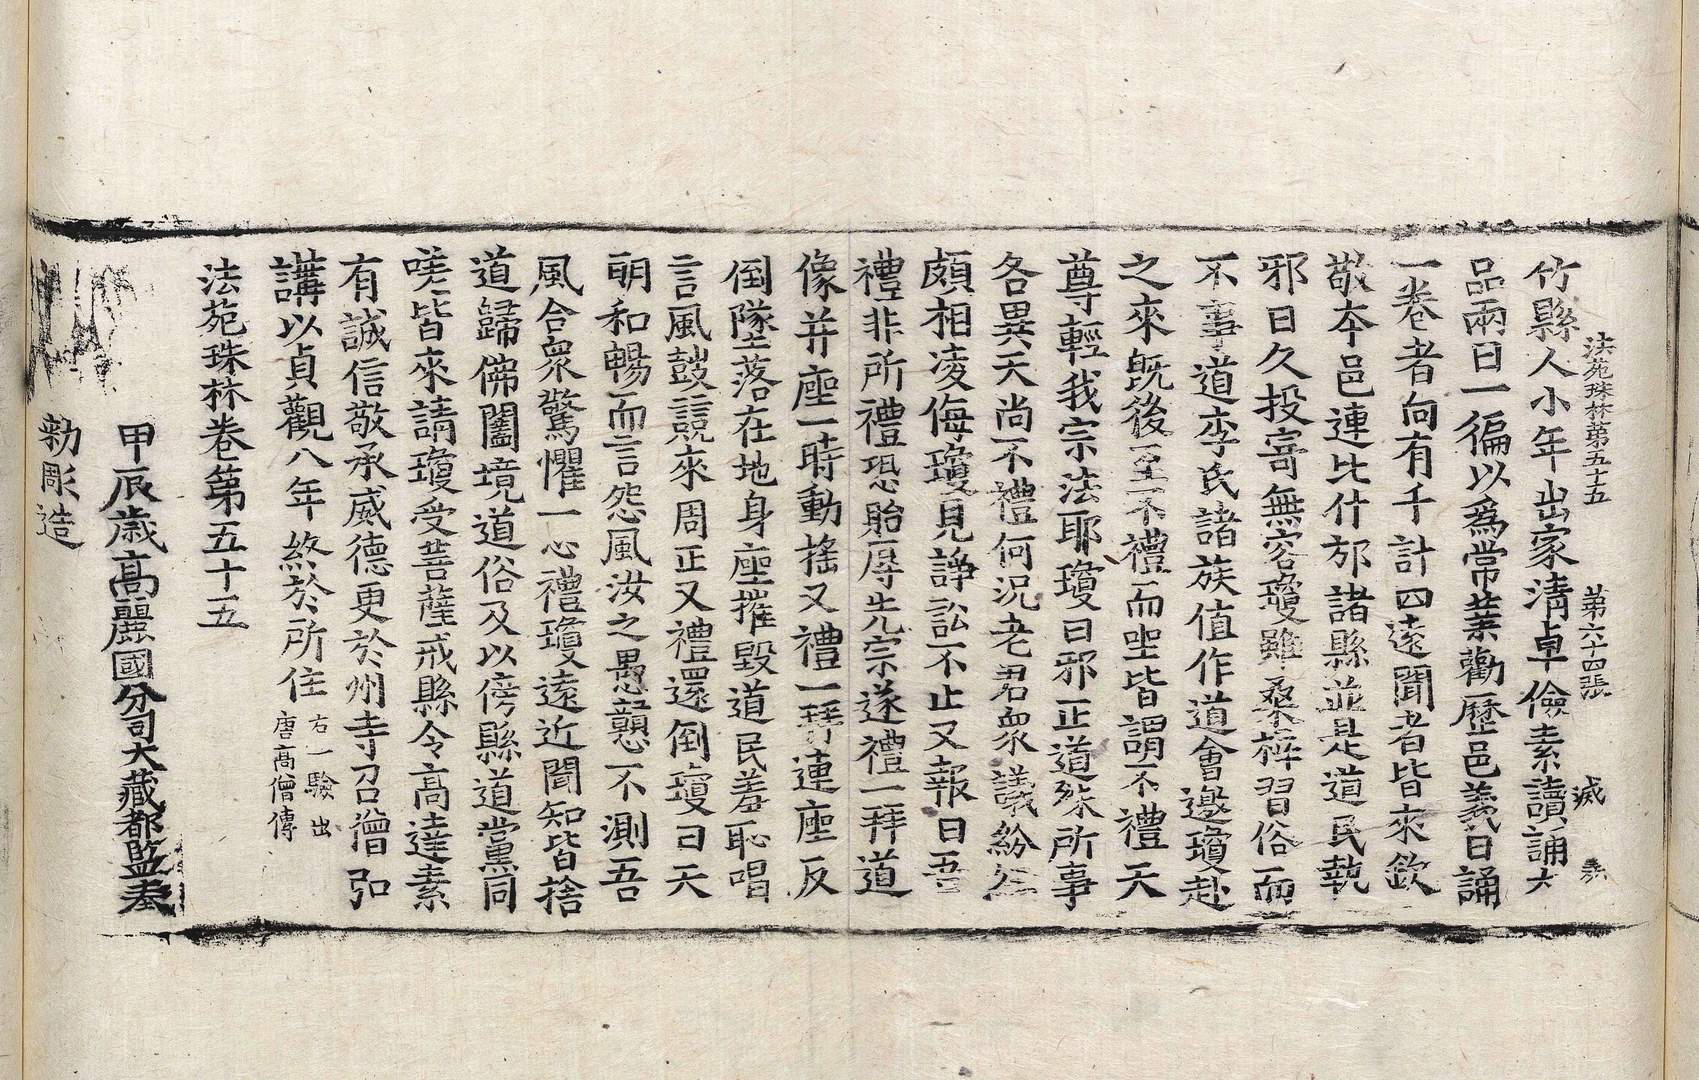 法苑珠林第五十五 第六十四張 滅
竹縣人小年出家清卓儉素讀誦大
品兩日一徧以爲常業勸歷邑義日誦
一卷者向有千計四遠聞者皆來欽
敬本邑連比什邡諸縣並是道民執
邪日久投寄無容瓊雖桑梓習俗而
不事道李氏諸族値作道會邀瓊赴
之來旣後至不禮而坐皆謂不禮天
尊輕我宗法耶瓊曰邪正道殊所事
各異天尚不禮何況老君衆議紛紜
頗相凌侮瓊見諍訟不止又報曰吾
禮非所禮恐貽辱先宗遂禮一拜道
像并座一時動搖又禮一拜連座反
倒墜落在地身座摧毀道民羞恥唱
言風鼓競來周正又禮還倒瓊曰天
朗和暢而言怨風汝之愚戇不測吾
風合衆驚懼一心禮瓊遠近聞知皆捨
道歸佛闔境道俗及以傍縣道黨同
嗟皆來請瓊受菩薩戒縣令高達素
有誠信敬承威德更於州寺召僧弘
講以貞觀八年終於所住 右一驗出
唐高僧傳
法苑珠林卷第五十五
甲辰歲高麗國分司大藏都監奉
勅彫造